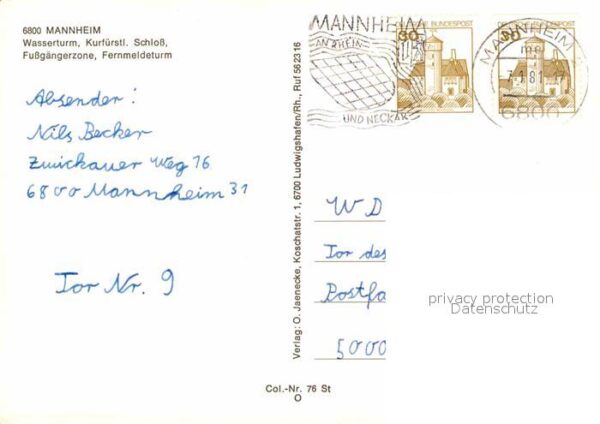 6800 MANNHEIM
Wasserturm, Kurfürstl. Schloß,
Fußgängerzone, Fernmeldeturm
Absender:
Nils Becker
Zwickauer Weg 16
6800 Mannheim 31
Tor Nr. 9
Verlag: O. Jaenecke, Koschatstr. 1, 6700 Ludwigshafen/Rh., Ruf 562316
Col.-Nr. 76 St
O
MANNHEIM
AN RHEIN
UND NECKAR
30
DEUTSCHE BUNDESPOST
MANNHEIM
me
7.1.81.17
6800
WD
Tor des
Postfa
5000
privacy protection
Datenschutz